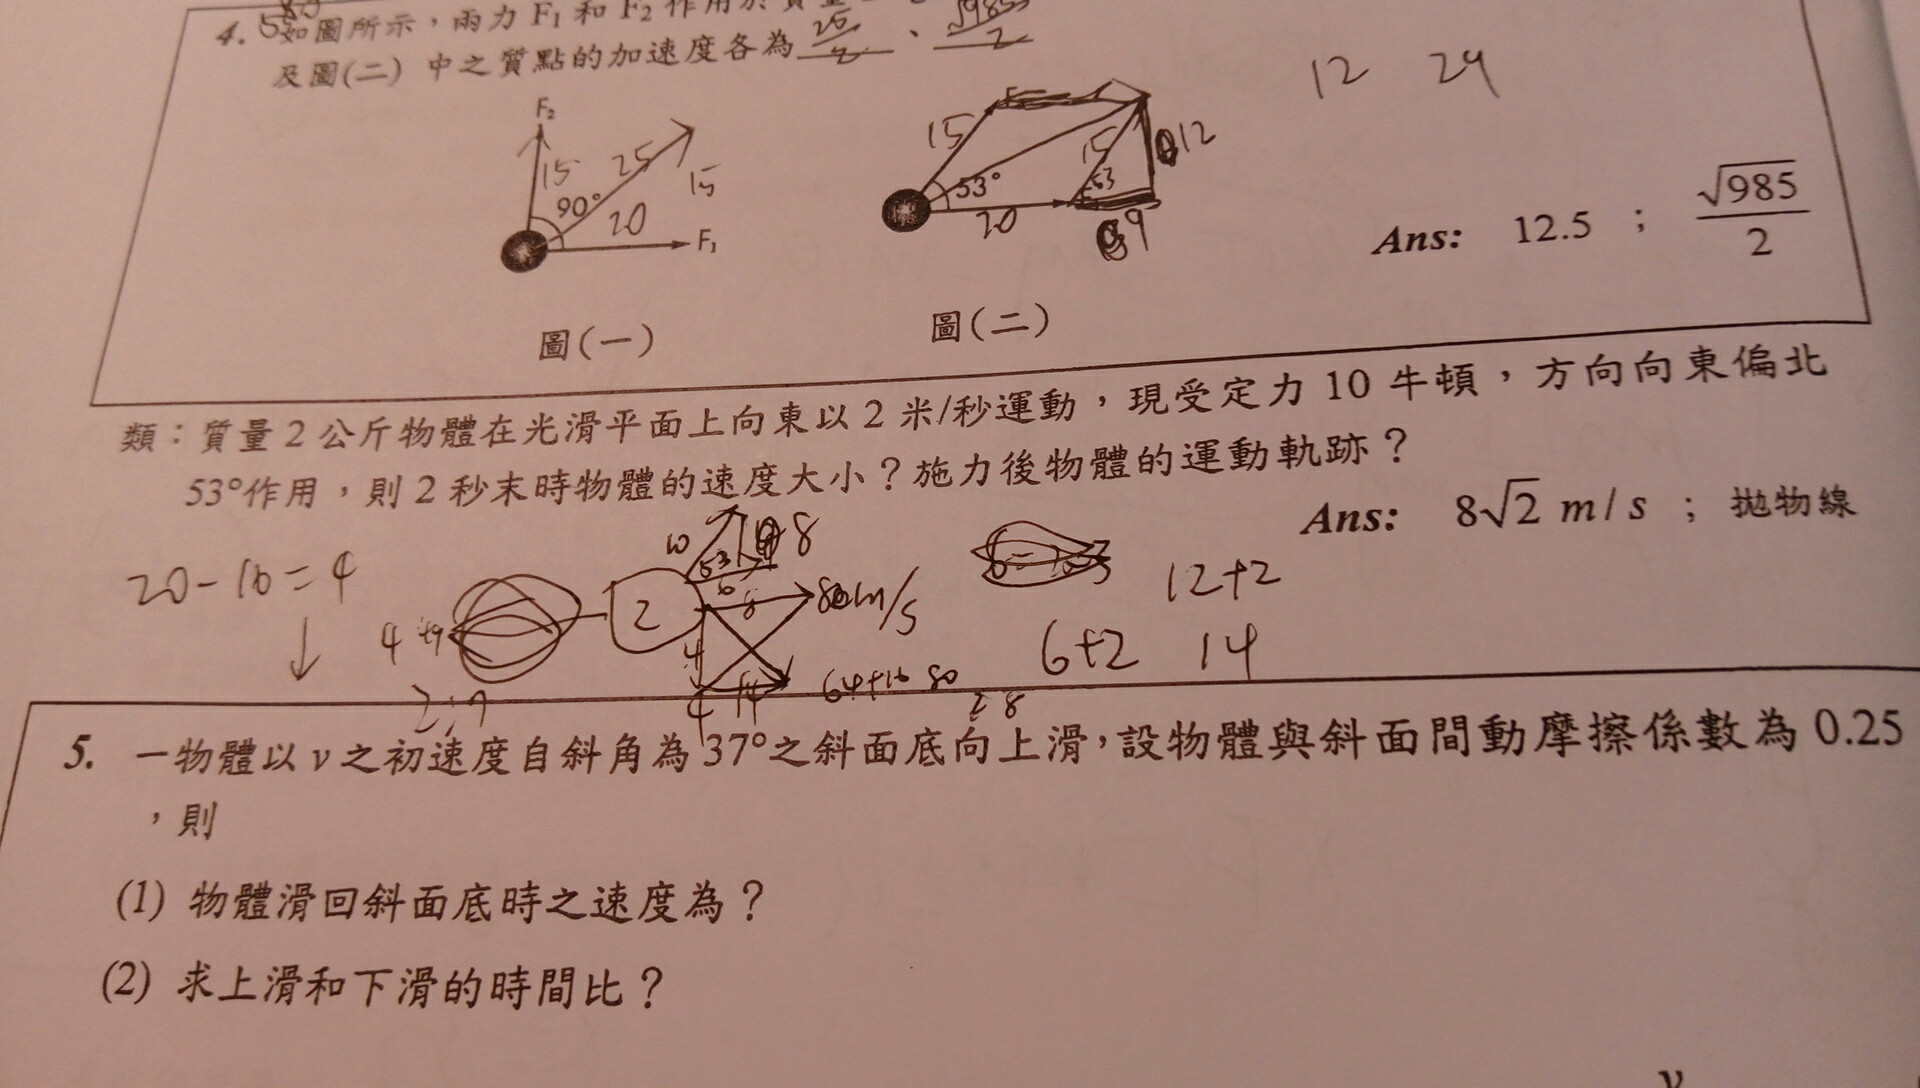 4. 如圖所示，兩力 F₁ 和 F₂ 作用於質量
及圖(二) 中之質點的加速度各為 25/2 、 √985/2
12 29
F₂
15 25 15
90° 20 F₁
15 15 12
53° 53
20 9
Ans: 12.5 ； √985/2
圖(一) 圖(二)
類：質量 2 公斤物體在光滑平面上向東以 2 米/秒運動，現受定力 10 牛頓，方向向東偏北
53°作用，則 2 秒末時物體的速度大小？施力後物體的運動軌跡？
Ans: 8√2 m/s ； 拋物線
20-16=4
10 53 8
6
2 8 m/s
12+2
6+2 14
4
4 14 64+16 80
2 8
5. 一物體以 v 之初速度自斜角為 37°之斜面底向上滑，設物體與斜面間動摩擦係數為 0.25
，則
(1) 物體滑回斜面底時之速度為？
(2) 求上滑和下滑的時間比？
v